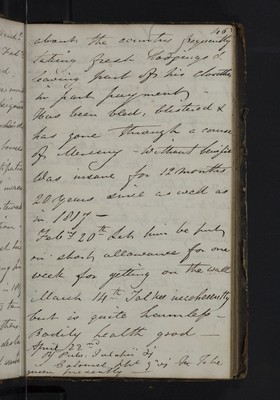 46
about the country frequently
taking fresh Lodgings &
leaving part of his Clothes
in part payment -
Has been bled, blistered &
has gone through a course
of Mercury - Without benefit
Was insane for 12 months
20 years since as well as
in 1817 -
Feby 20th Let him be put
on short allowance for one
week for getting on the wall
March 14th Talkes incoherently
but is quite harmless -
Bodily health good -
April 22nd
Calomel